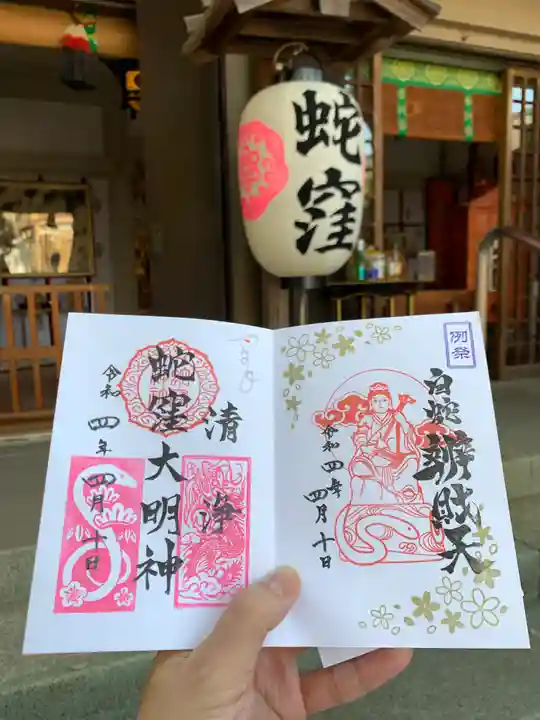 蛇窪
例祭
白蛇辨財天
令和四年四月十日
蛇窪大明神
清浄
令和四年四月十日